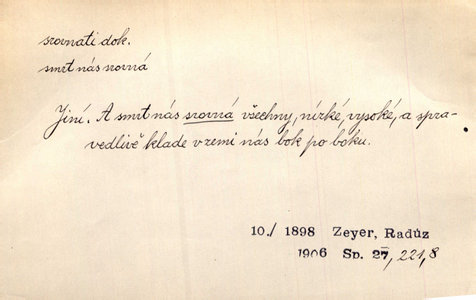 srovnati dok.
smrt nás srovná
Jiní. A smrt nás srovná všechny, nízké, vysoké, a spra-
vedlivě klade v zemi nás bok po boku.
10./ 1898 Zeyer, Radúz
1906 Sp. 27, 221,8